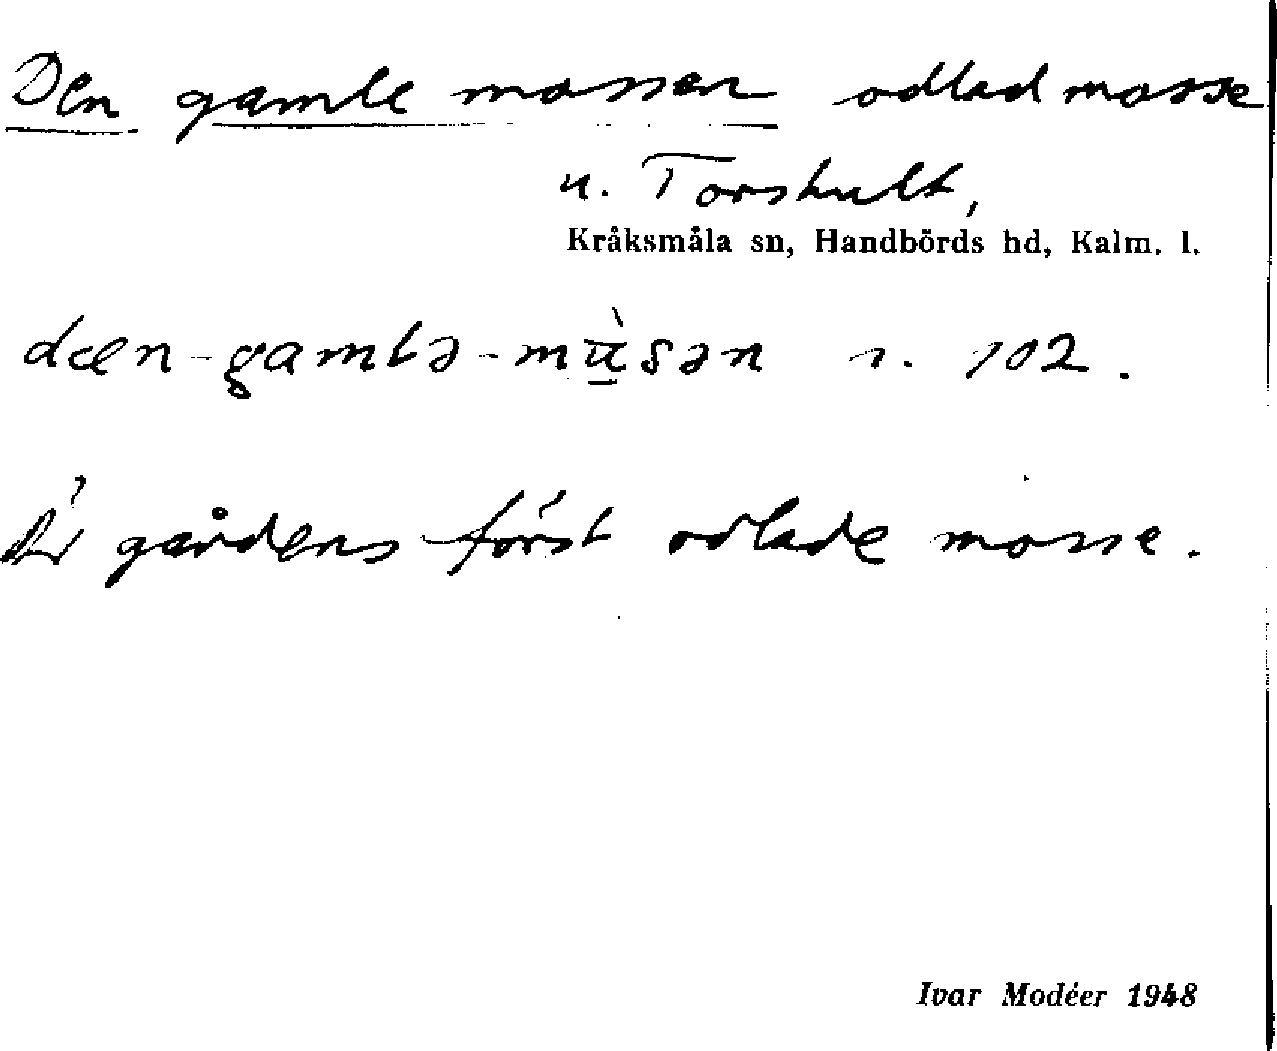 Den gamle mossen odlad mosse
u. Torshult,
Kråksmåla sn, Handbörds hd, Kalm. l.
dæn-gamlə-mùsən r. 102.
Är gårdens först odlade mosse.
Ivar Modéer 1948